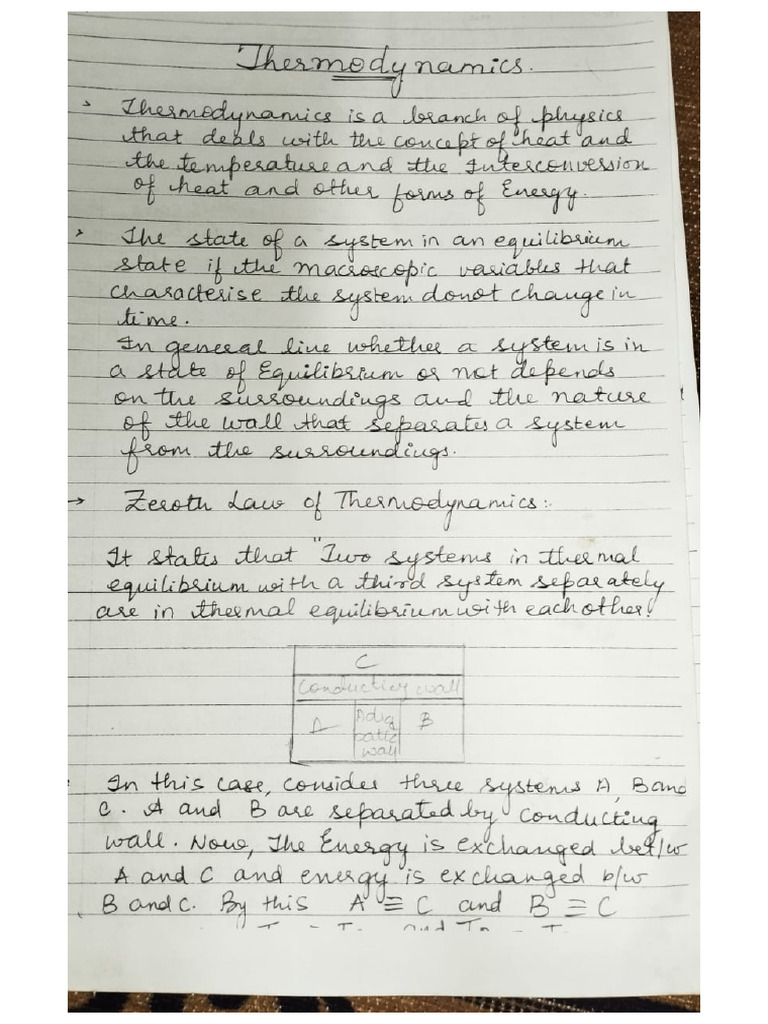 Thermodynamics.
Thermodynamics is a branch of physics
that deals with the concept of heat and
the temperature and the Interconversion
of heat and other forms of Energy.
The state of a system in an equilibrium
state if the macroscopic variables that
characterise the system donot change in
time.
In general line whether a system is in
a state of Equilibrium or not depends
on the surroundings and the nature
of the wall that separates a system
from the surroundings.
→ Zeroth Law of Thermodynamics:-
It states that "Two systems in thermal
equilibrium with a third system separately
are in thermal equilibrium with each other!
C
Conducting wall
A
Adia
batic
wall
B
In this case, consider three systems A, B and
C. A and B are separated by conducting
wall. Now, The Energy is exchanged bet/w
A and C and energy is exchanged b/w
B and C. By this A ≡ C and B ≡ C